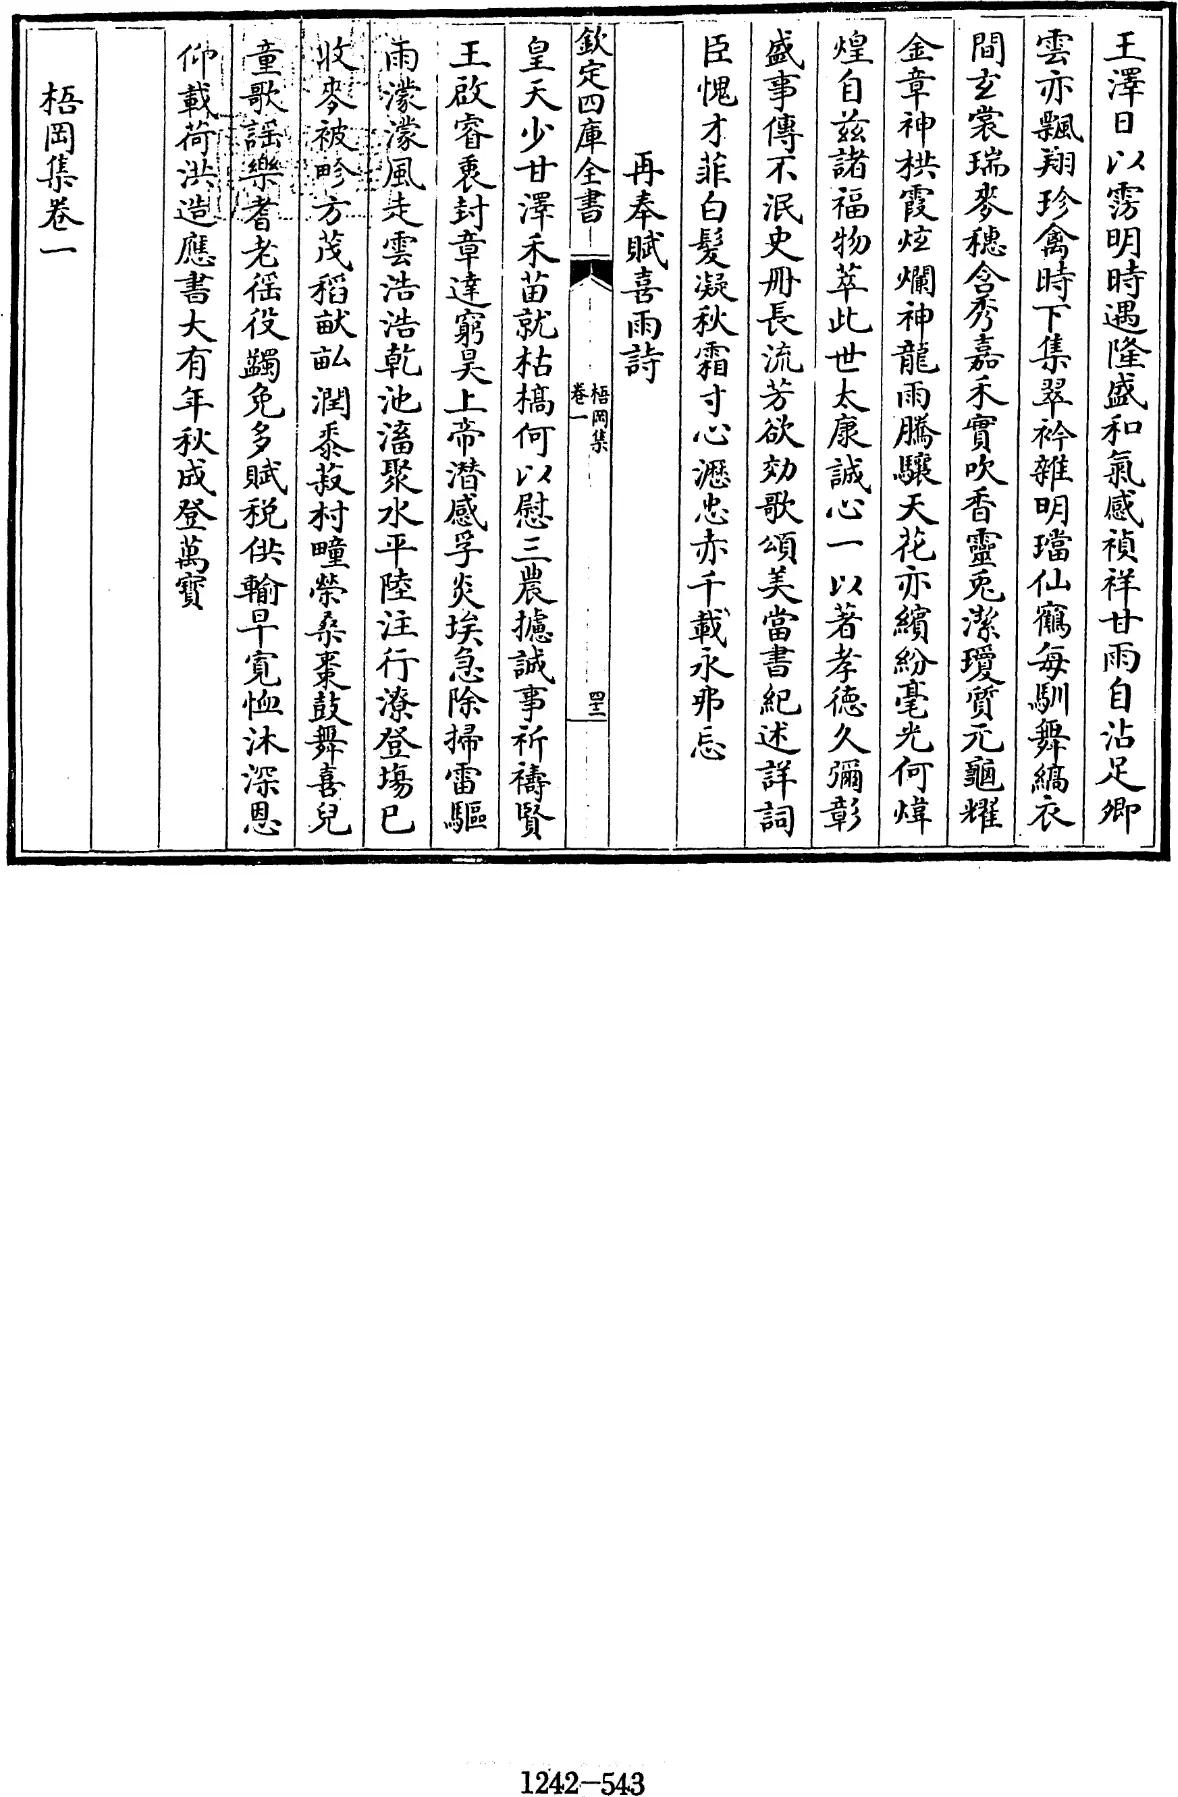 王澤日以雱明時遇隆盛和氣感禎祥甘雨自沾足卿
雲亦飄翔珍禽時下集翠衿雜明璫仙鶴每馴舞縞衣
間玄裳瑞麥穗含秀嘉禾實吹香靈兎潔瓊質元龜耀
金章神栱霞炫爛神龍雨騰驤天花亦繽紛毫光何煒
煌自兹諸福物萃此世太康誠心一以著孝德久彌彰
盛事傳不泯史冊長流芳欲効歌頌美當書紀述詳詞
臣愧才菲白髮凝秋霜寸心瀝忠赤千載永弗忘
再奉賦喜雨詩
欽定四庫全書
梧岡集
卷一
四十二
皇天少甘澤禾苗就枯槁何以慰三農攄誠事祈禱賢
王啟睿衷封章達窮昊上帝潛感孚炎埃急除掃雷驅
雨濛濛風走雲浩浩乾池滀聚水平陸注行潦登場已
收麥被畛方茂稻畝畝潤黍菽村疃榮桑棗鼓舞喜兒
童歌謡樂耆老徭役蠲免多賦稅供輸早寛恤沐深恩
仰載荷洪造應書大有年秋成登萬寳
梧岡集卷一
1242-543